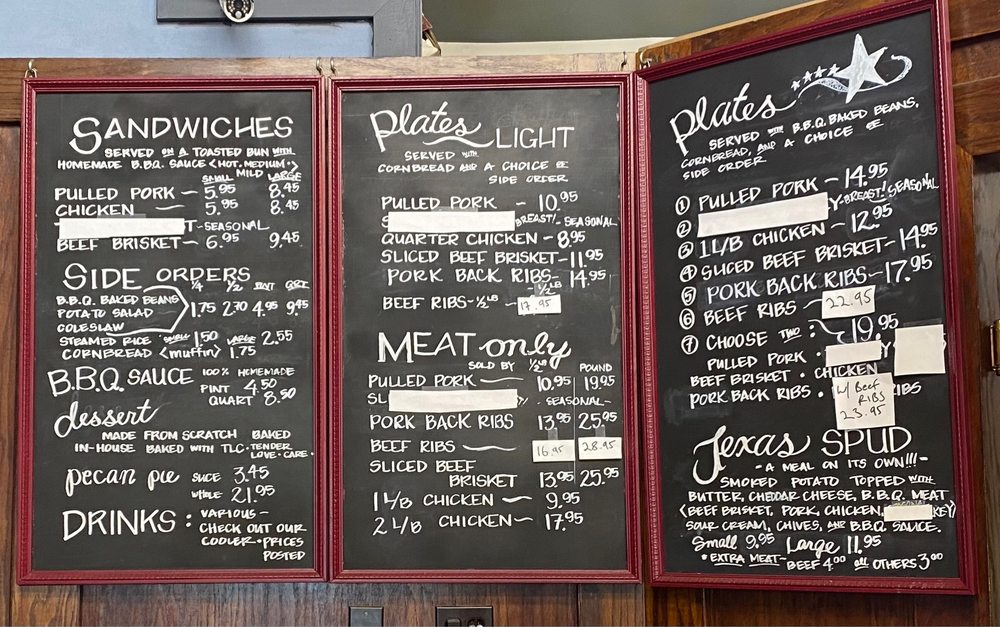 SANDWICHES
SERVED ON A TOASTED BUN WITH
HOMEMADE B.B.Q. SAUCE <HOT, MEDIUM, MILD>
SMALL LARGE
PULLED PORK - 5.95 8.45
CHICKEN - 5.95 8.45
T - SEASONAL
BEEF BRISKET - 6.95 9.45
SIDE ORDERS
1/4 1/2 PINT QRT
B.B.Q. BAKED BEANS
POTATO SALAD 1.75 2.70 4.95 9.45
COLESLAW
STEAMED RICE - SMALL 1.50 LARGE 2.55
CORNBREAD <muffin> 1.75
B.B.Q. SAUCE 100% HOMEMADE
PINT 4.50
QUART 8.50
dessert
MADE FROM SCRATCH BAKED
IN-HOUSE BAKED WITH TLC - TENDER
LOVE - CARE -
pecan pie SLICE 3.45
WHOLE 21.95
DRINKS: VARIOUS -
CHECK OUT OUR
COOLER - PRICES
POSTED
Plates LIGHT
SERVED WITH
CORNBREAD AND A CHOICE OF
SIDE ORDER
PULLED PORK - 10.95
BREAST! - SEASONAL
QUARTER CHICKEN - 8.95
SLICED BEEF BRISKET - 11.95
PORK BACK RIBS - 14.95
BEEF RIBS - 1/2 LB - 1/2 LB 17.95
MEAT only
SOLD BY 1/2 LB POUND
PULLED PORK — 10.95 19.95
SL - SEASONAL -
PORK BACK RIBS 13.95 25.95
BEEF RIBS — 16.95 28.95
SLICED BEEF
BRISKET 13.95 25.95
1 LB CHICKEN — 9.95
2 LB CHICKEN — 17.95
Plates
SERVED WITH B.B.Q. BAKED BEANS,
CORNBREAD, AND A CHOICE OF
SIDE ORDER
① PULLED PORK - 14.95
② Y-BREAST! SEASONAL
③ 1 LB CHICKEN - 12.95
④ SLICED BEEF BRISKET - 14.95
⑤ PORK BACK RIBS - 17.95
⑥ BEEF RIBS - 22.95
⑦ CHOOSE TWO: - 19.95
PULLED PORK · Y
BEEF BRISKET · CHICKEN
PORK BACK RIBS · RIBS
W/ Beef
RIBS
23.95
Texas SPUD
- A MEAL ON ITS OWN!!! -
SMOKED POTATO TOPPED WITH
BUTTER, CHEDDAR CHEESE, B.B.Q. MEAT
<BEEF BRISKET, PORK, CHICKEN, KEY>
SOUR CREAM, CHIVES, AND B.B.Q. SAUCE.
Small 9.95 Large 11.95
*EXTRA MEAT - BEEF 4.00 all OTHERS 3.00